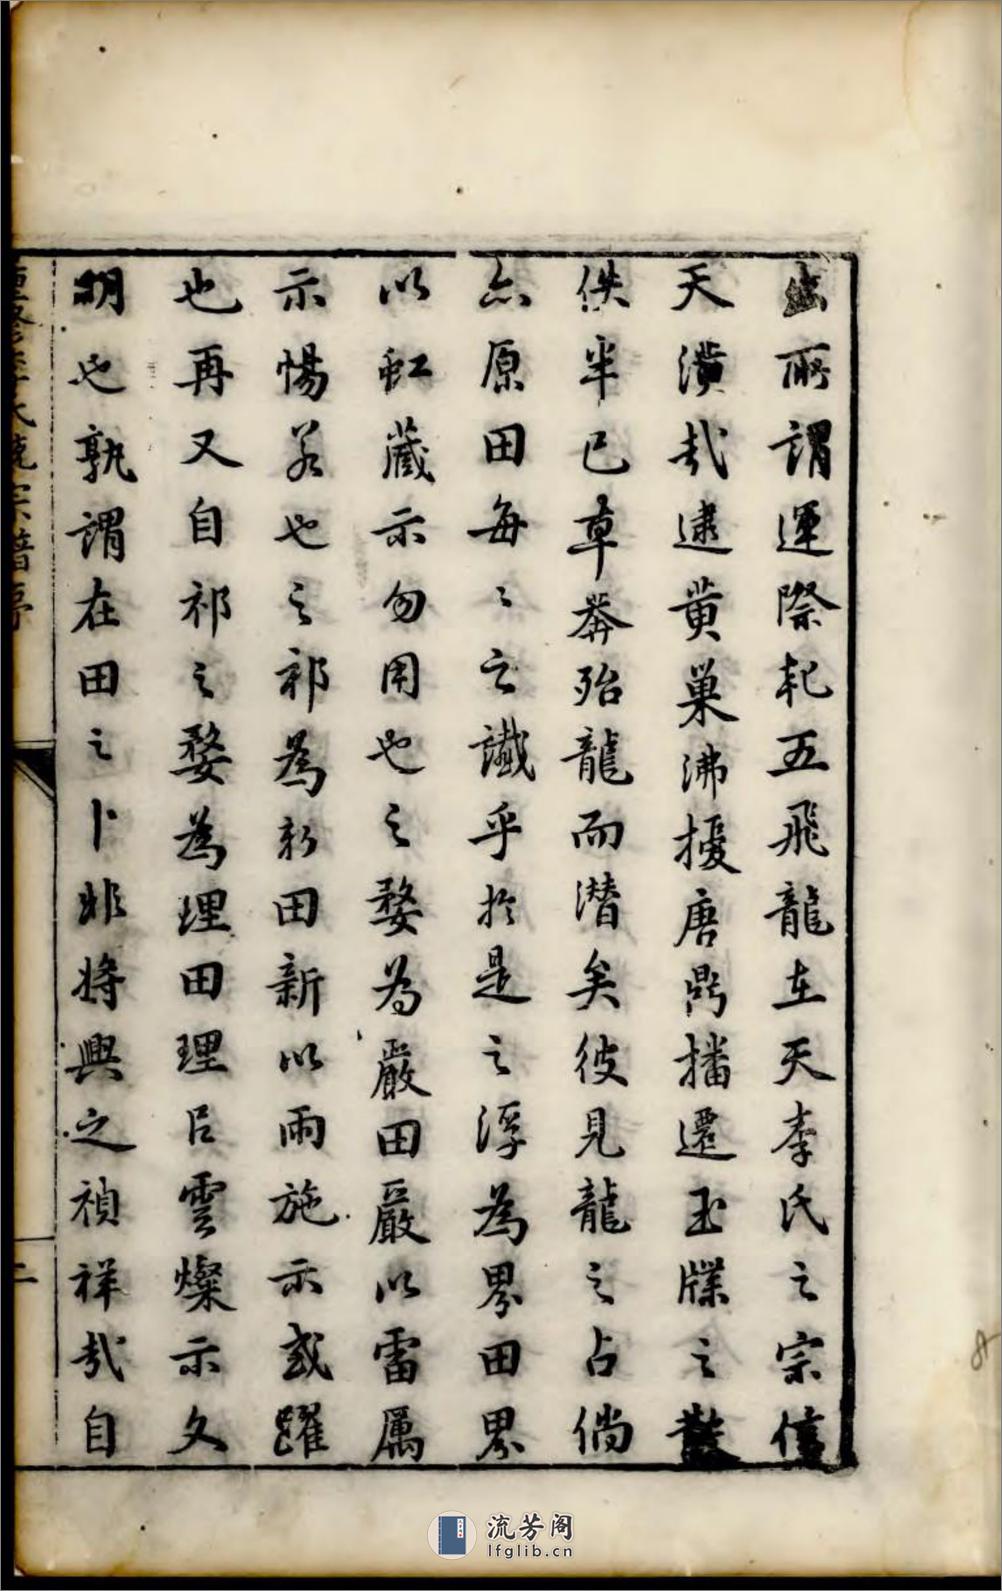 出所謂運際起五飛龍在天李氏之宗信
天潢哉逮黄巢沸擾唐鼎播遷玉牒之散
佚半已草莽殆龍而潜矣彼見龍之占倘
亦原田每〻之讖乎於是之浮為界田界
以虹藏示勿用也之婺為嚴田嚴以雷厲
示惕若也之祁為新田新以雨施示或躍
也再又自祁之婺為理田理呂雲燦示文
明也孰謂在田之卜非將興之禎祥哉自
宗譜序
二
流芳阁
lfglib.cn